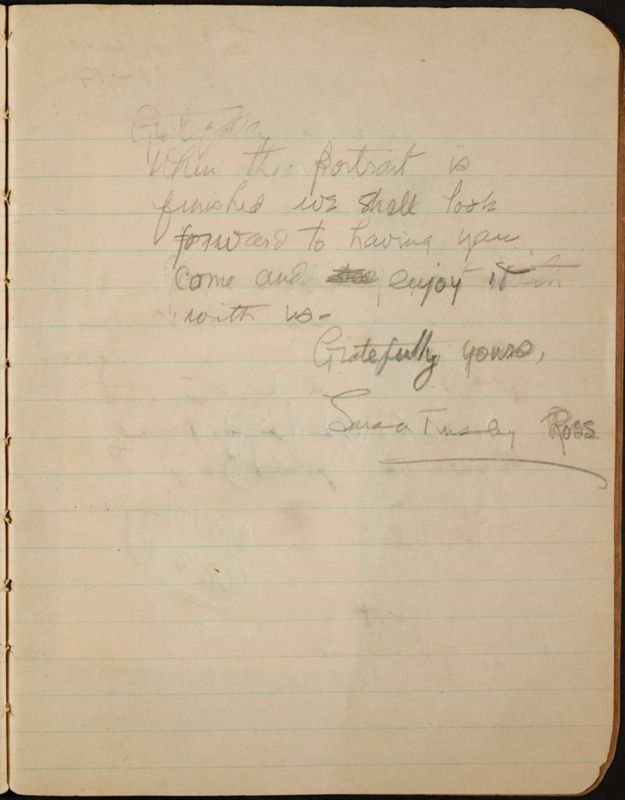 When the portrait is
finished we shall look
forward to having you
come and enjoy it
with us-
Gratefully yours,
Ross